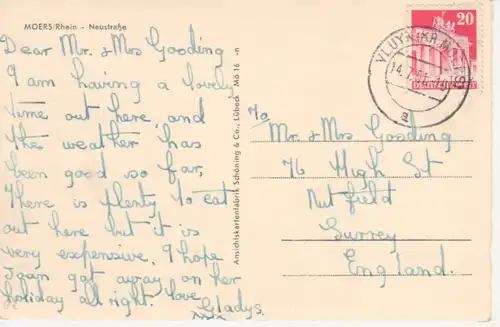 MOERS/Rhein - Neustraße
Dear Mr. & Mrs Gooding
I am having a lovely
time out here, and
the weather has
been good so far,
There is plenty to eat
out here but it is
very expensive. I hope
Joan got away on her
holiday all right. love
Gladys.
xxx
Mö 16 -n
Ansichtskartenfabrik Schöning & Co., Lübeck
20
DEUTSCHE POST
VLUYN (KR. MOERS)
a
To
Mr. & Mrs Gooding
76 High St
Nutfield
Surrey
England.